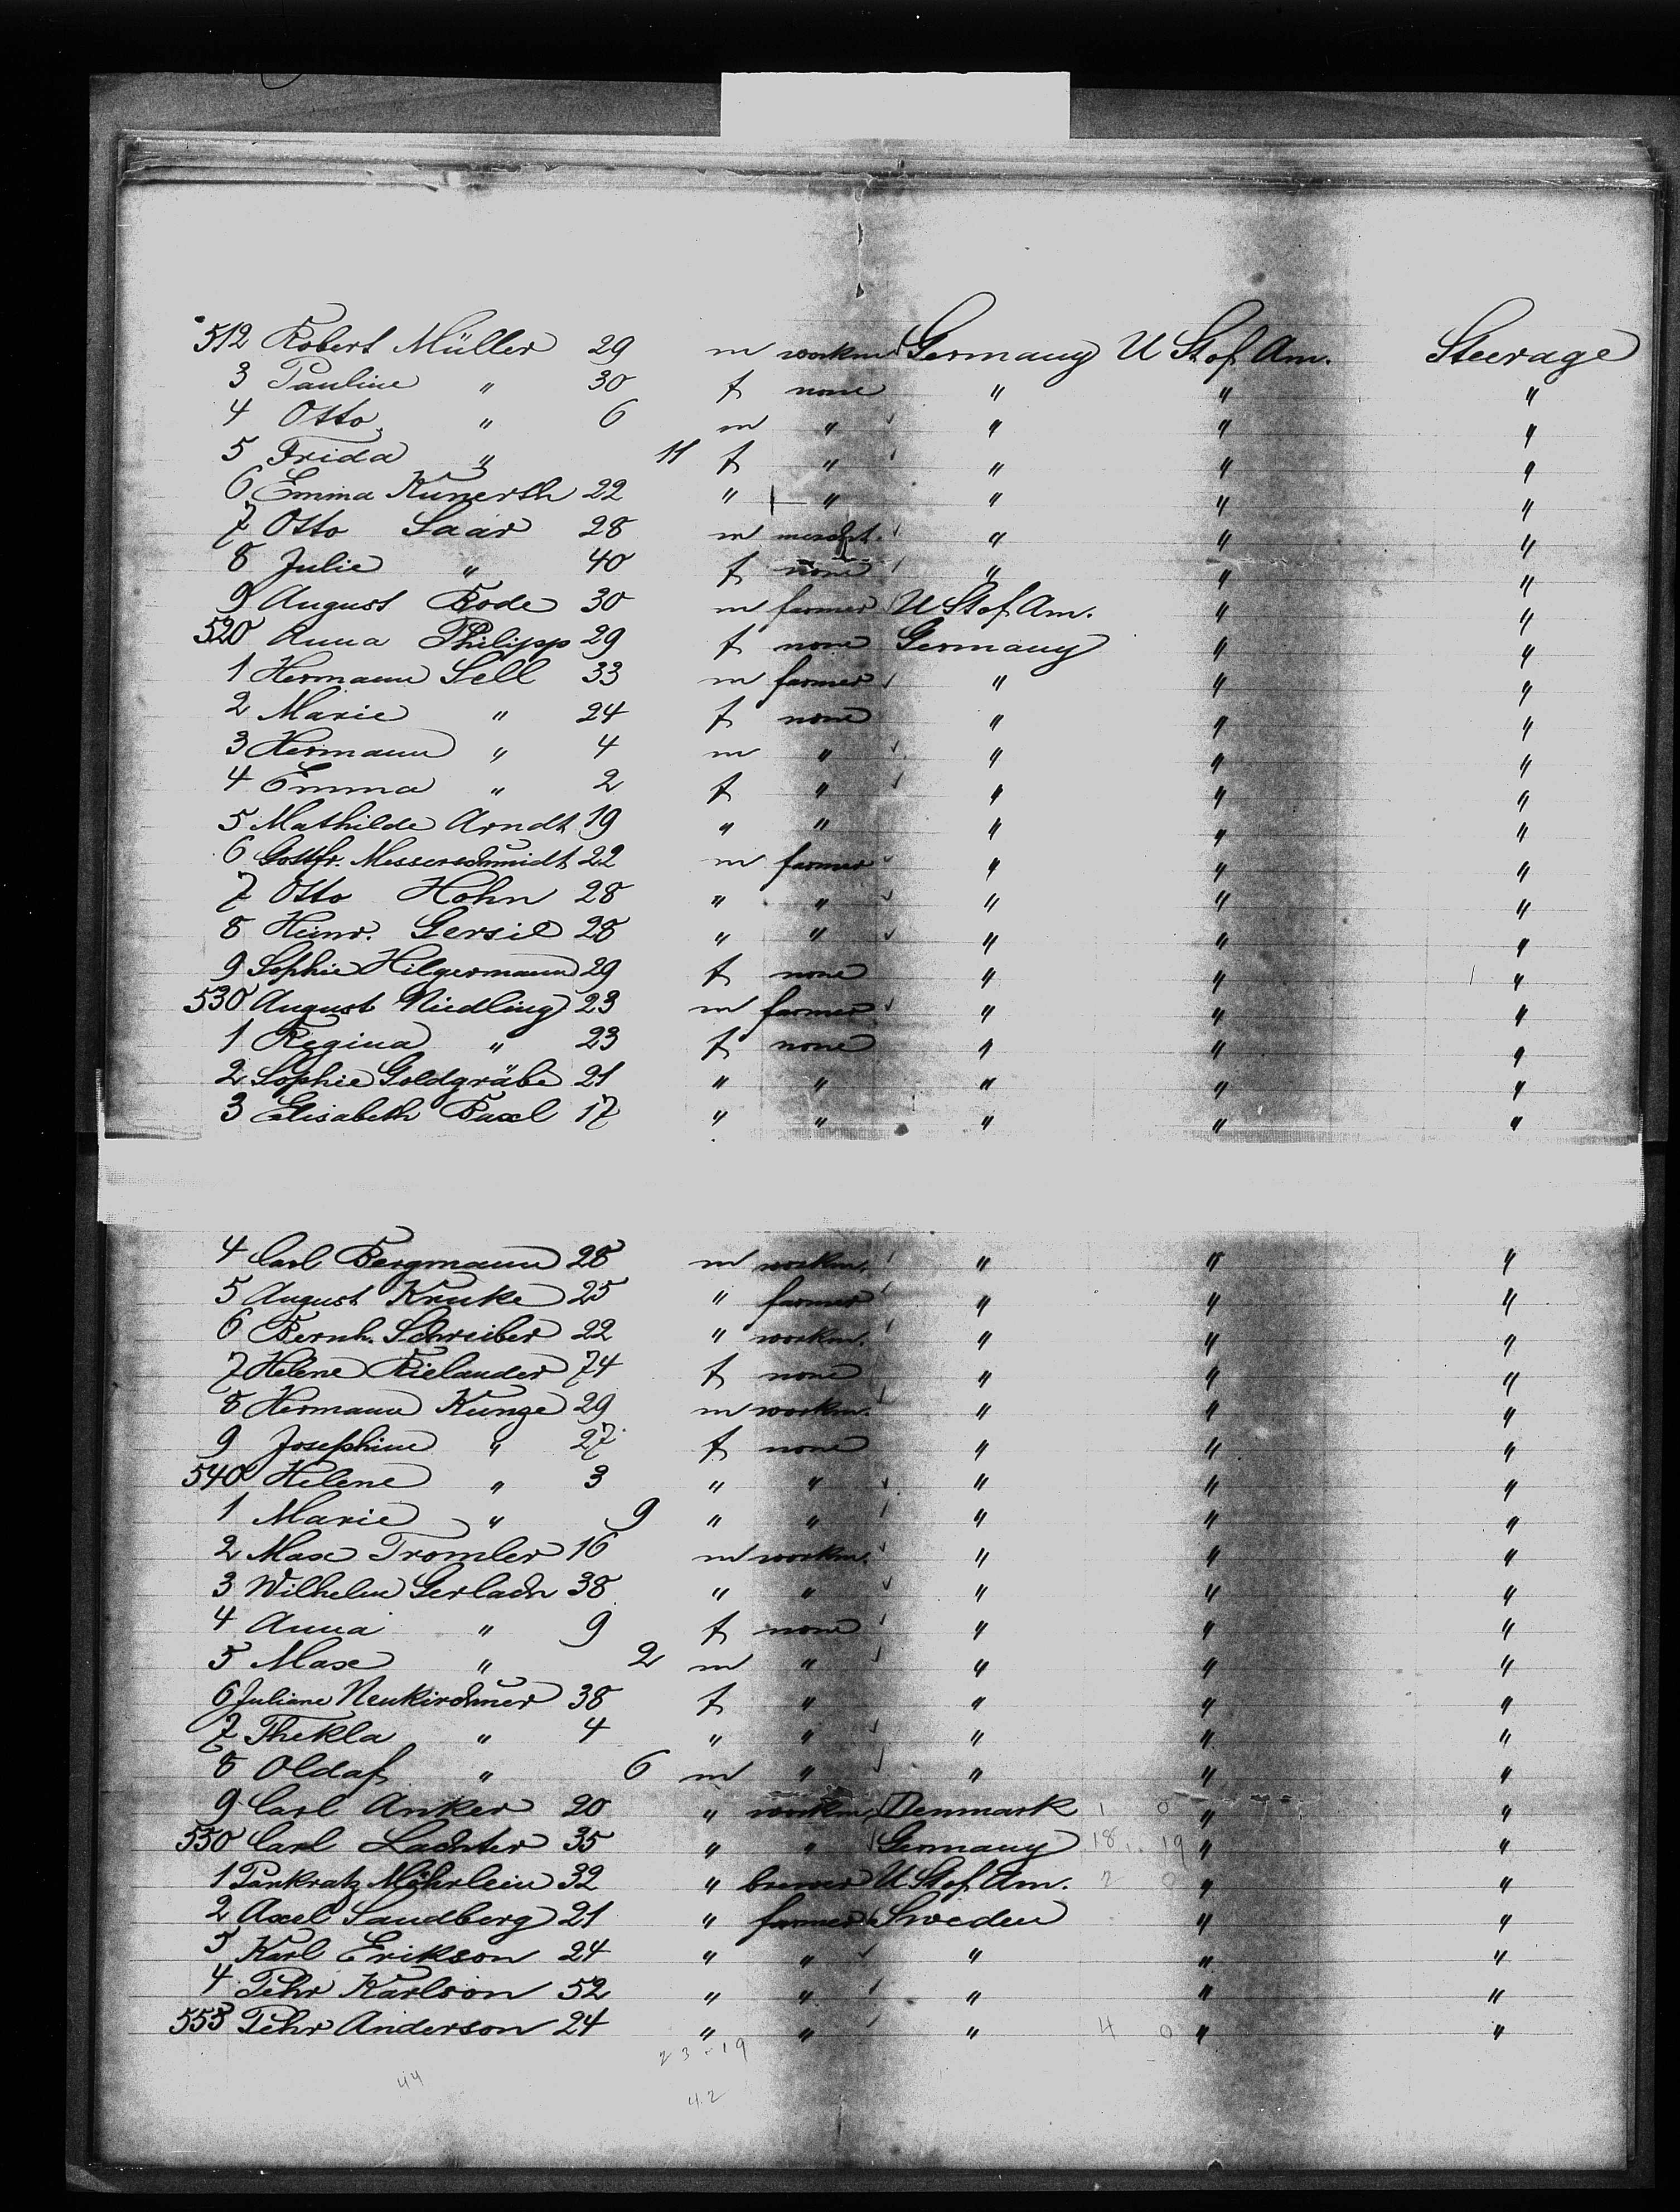 512 Robert Müller 29 m workm Germany U St of Am. Steerage
3 Pauline " 30 f none " " "
4 Otto " 6 m " " " "
5 Frida " 11 f " " " "
6 Emma Kunerth 22 " " " " "
7 Otto Saar 28 m mercht. " " "
8 Julie " 40 f none " " "
9 August Bode 30 m farmer U St of Am. " "
520 Anna Philipp 29 f none Germany " "
1 Hermann Sell 33 m farmer " " "
2 Marie " 24 f none " " "
3 Hermann " 4 m " " " "
4 Emma " 2 f " " " "
5 Mathilde Arndt 19 " " " " "
6 Gottfr. Messerschmidt 22 m farmer " " "
7 Otto Hohn 28 " " " " "
8 Heinr. Gersie 28 " " " " "
9 Sophie Hilgermann 29 f none " " "
530 August Niedling 23 m farmer " " "
1 Regina " 23 f none " " "
2 Sophie Goldgräbe 21 " " " " "
3 Elisabeth Baxl 17 " " " " "
4 Carl Bergmann 28 m workm. " " "
5 August Kruke 25 " farmer " " "
6 Bernh. Schreiber 22 " workm. " " "
7 Helene Rielander 74 f none " " "
8 Hermann Kunze 29 m workm. " " "
9 Josephine " 27 f none " " "
540 Helene " 3 " " " " "
1 Marie " 9 " " " " "
2 Max Tromler 16 m workm. " " "
3 Wilhelm Gerlach 38 " " " " "
4 Anna " 9 f none " " "
5 Max " 2 m " " " "
6 Juliane Neukirchner 38 f " " " "
7 Thekla " 4 " " " " "
8 Oldaf " 6 m " " " "
9 Carl Anker 20 " workm. Denmark 1 0 " "
550 Carl Lachter 35 " " Germany 18 19 " "
1 Pankratz Möhrlein 32 " brewer U St of Am. 2 0 " "
2 Axel Sandberg 21 " farmer Sweden " "
3 Karl Erikson 24 " " " " "
4 Pehr Karlson 52 " " " " "
555 Pehr Anderson 24 " " " 4 0 " "
23 19
44
42